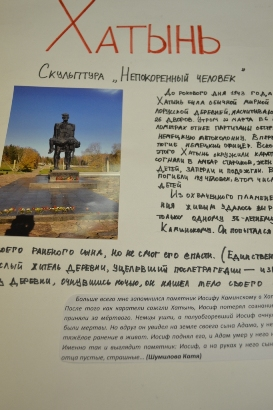 ХАТЫНЬ
СКУЛЬПТУРА „НЕПОКОРЕННЫЙ ЧЕЛОВЕК"
ДО РОКОВОГО ДНЯ 1943 ГОДА
ХАТЫНЬ БЫЛА ОБЫЧНОЙ МИРНОЙ
ДЕРЕВНЕЙ,
26 ДВОРОВ. УТРОМ 22 МАРТА В
ПАРТИЗАНЫ
НЕМЕЦКУЮ АВТОКОЛОННУ. В ПЕРЕ
НЕМЕЦКИЙ ОФИЦЕР.
ЭТОГО ХАТЫНЬ ОКРУЖИЛИ КАРАТ
СОГНАЛИ В АМБАР СТАРИКОВ, ЖЕН
ДЕТЕЙ, ЗАПЕРЛИ И ПОДОЖГЛИ.
ПОГИБЛИ ЧЕЛОВЕК, В ТОМ ЧИСЛ
ДЕТЕЙ
ИЗ ОХВАЧЕННОГО ПЛАМЕНЕ
НИЯ ЖИВЫМ УДАЛОСЬ ВЫР
ТОЛЬКО ОДНОМУ 56-ЛЕТНЕМУ
КАМИНСКОМУ. ОН ПОПЫТАЛСЯ
СВОЕГО РАНЕНОГО СЫНА, НО НЕ СМОГ ЕГО СПАСТИ. (ЕДИНСТВЕН
ЖИТЕЛЬ ДЕРЕВНИ, УЦЕЛЕВШИЙ ПОСЛЕ ТРАГЕДИИ —
ДЕРЕВНИ, ОЧНУВШИСЬ НОЧЬЮ, ОН НАШЕЛ ТЕЛО СВОЕГО
Больше всего мне запомнился памятник Иосифу Каминскому в Хат
После того как каратели сожгли Хатынь, Иосиф потерял сознание
приняли за мёртвого. Немцы ушли, а полуобгоревший Иосиф очну
были мертвы. Но вдруг он увидел на земле своего сына Адама, у не
тяжёлое ранение в живот. Иосиф поднял его, и Адам умер у него
Именно так и выглядит памятник: Иосиф, а на руках у него сын
отца пустые, страшные... (Шумилова Катя)